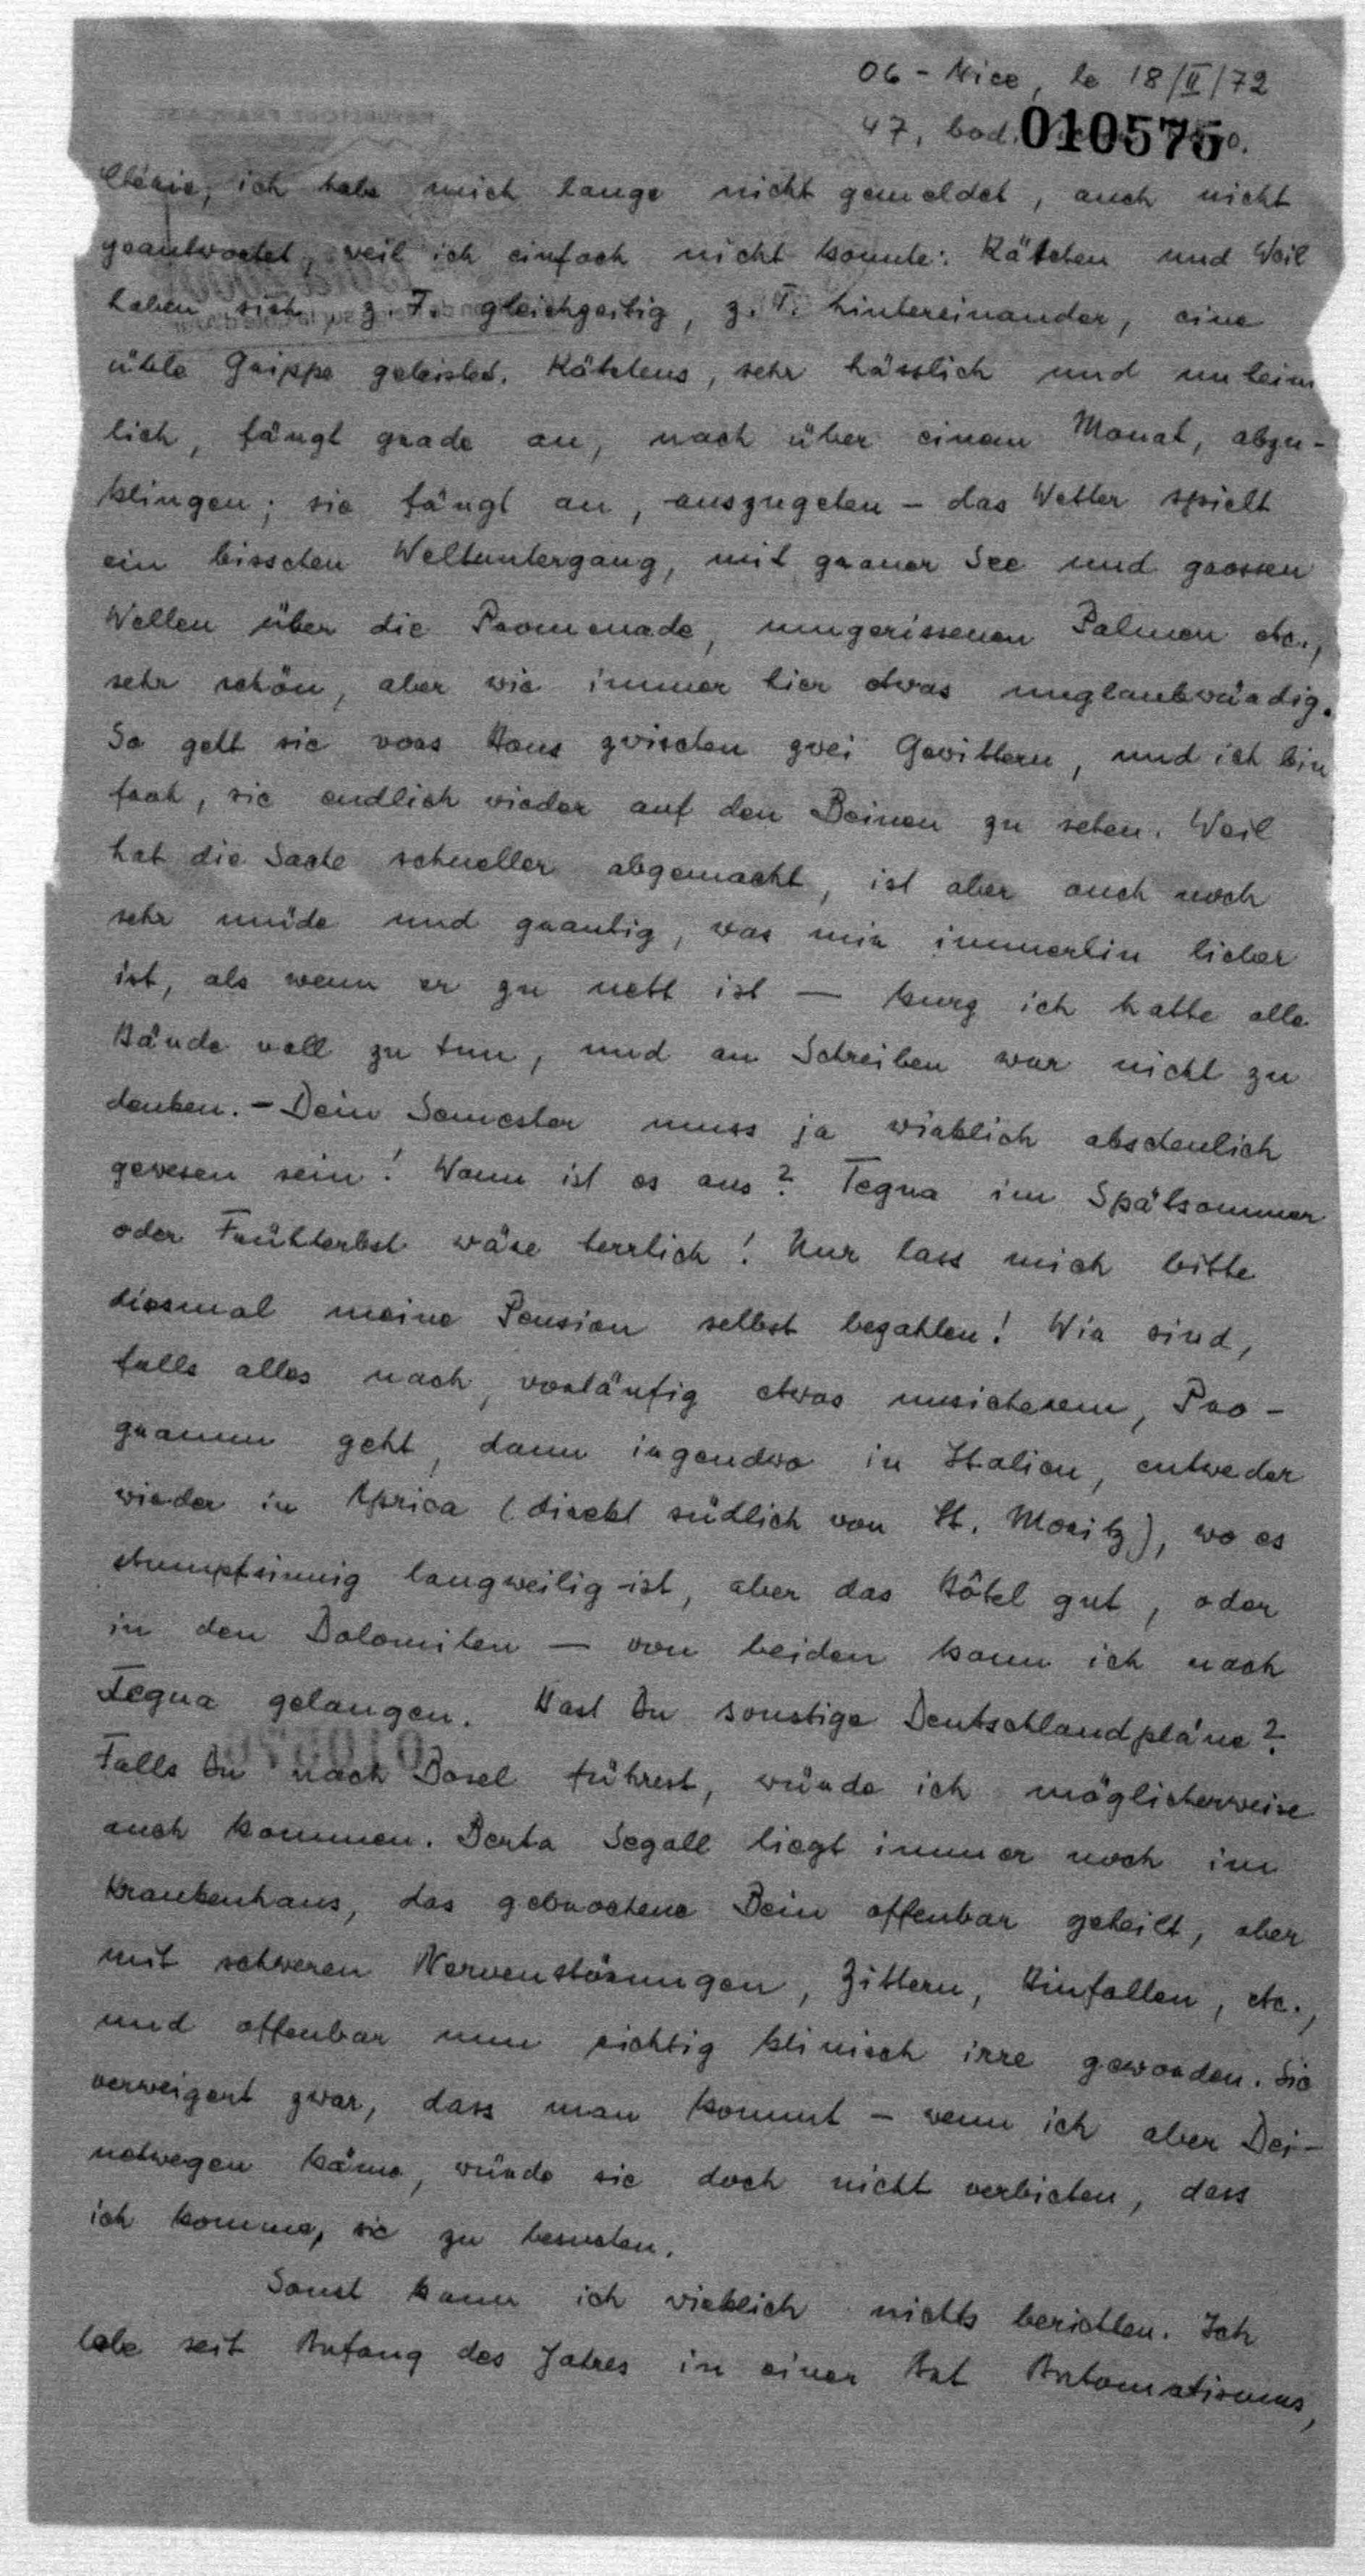 06 - Nice, le 18/II/72
47, bod. 010575
Chérie, ich habe mich lange nicht gemeldet, auch nicht
geantwortet, weil ich einfach nicht konnte: Kätchen und Weil
haben sich z. T. gleichzeitig, z. T. hintereinander, eine
üble Grippe geleistet. Kätchens, sehr hässlich und unheim
lich, fängt grade an, nach über einem Monat, abzu-
klingen; sie fängt an, auszugehen - das Wetter spielt
ein bisschen Weltuntergang, mit grauer See und grossen
Wellen über die Promenade, umgerissenen Palmen etc.,
sehr schön, aber wie immer hier etwas unglaubwürdig.
So geht sie vors Haus zwischen zwei Gewittern, und ich bin
froh, sie endlich wieder auf den Beinen zu sehen. Weil
hat die Sache schneller abgemacht, ist aber auch noch
sehr müde und grantig, was mir immerhin lieber
ist, als wenn er zu nett ist — kurz ich hatte alle
Hände voll zu tun, und an Schreiben war nicht zu
denken. - Dein Semester muss ja wirklich abscheulich
gewesen sein! Wann ist es aus? Tegna im Spätsommer
oder Frühherbst wäre herrlich! Nur lass mich bitte
diesmal meine Pension selbst bezahlen! Wir sind,
falls alles nach, vorläufig etwas unsicherem, Pro-
gramm geht, dann irgendwo in Italien, entweder
wieder in Aprica (direkt südlich von St. Moritz), wo es
stumpfsinnig langweilig ist, aber das Hôtel gut, oder
in den Dolomiten — von beiden kann ich nach
Tegna gelangen. Hast Du sonstige Deutschlandpläne?
Falls Du nach Basel führest, würde ich möglicherweise
auch kommen. Berta Segall liegt immer noch im
Krankenhaus, das gebrochene Bein offenbar geheilt, aber
mit schweren Nervenstörungen, Zittern, Hinfallen, etc.,
und offenbar nun richtig klinisch irre geworden. Sie
verweigert zwar, dass man kommt - wenn ich aber Dei-
netwegen käme, würde sie doch nicht verbieten, dass
ich komme, sie zu besuchen.
Sonst kann ich wirklich nichts berichten. Ich
lebe seit Anfang des Jahres in einer Art Automatismus,